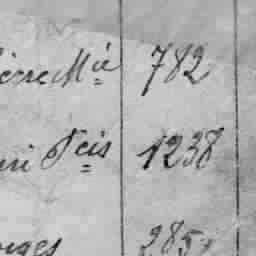 ierre Mie 782
ri Fcis 1238
orges 285